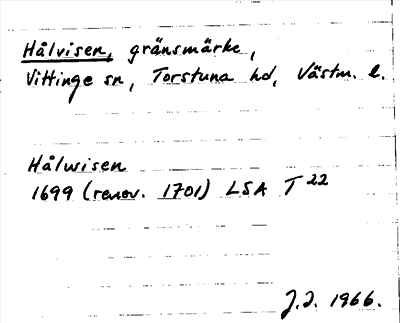 Hålvisen, gränsmärke,
Vittinge sn, Torstuna hd, Västm. l.
Hålwisen
1699 (renov. 1701) LSA T 22
J.I. 1966.